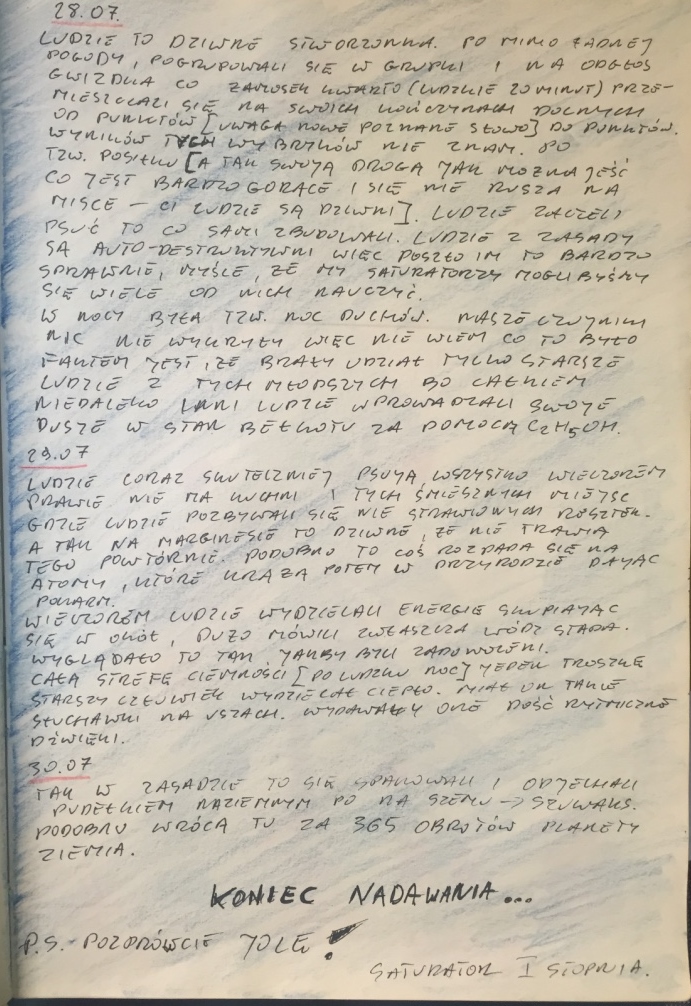 28.07.
LUDZIE TO DZIWNE STWORZONKA. PO MIMO ŁADNEJ
POGODY, POGRUPOWALI SIĘ W GRUPKI I NA ODGŁOS
GWIZDKA CO ZAŁOSEK KWARTO (LUDZKIE 20 MINUT) PRZE-
MIESZCZALI SIĘ NA SWOICH KOŃCZYNACH DOLNYCH
OD PUNKTÓW [UWAGA NOWE POZNANE SŁOWO] DO PUNKTÓW.
WYNIKÓW TYCH WYBRYKÓW NIE ZNAM. PO
TZW. POSIŁKU [A TAK SWOJĄ DROGĄ JAK MOŻNA JEŚĆ
CO JEST BARDZO GORĄCE I SIĘ NIE RUSZA NA
MISCE – CI LUDZIE SĄ DZIWNI]. LUDZIE ZACZELI
PSUĆ TO CO SAMI ZBUDOWALI. LUDZIE Z ZASADY
SĄ AUTO-DESTRUKTYWNI WIĘC POSZŁO IM TO BARDZO
SPRAWNIE, MYŚLĘ, ŻE MY SATURATORZY MOGLIBYŚMY
SIĘ WIELE OD NICH NAUCZYĆ.
W NOCY BYŁA TZW. NOC DUCHÓW. NASZE CZUJNIKI
NIC NIE WYKRYŁY WIĘC NIE WIEM CO TO BYŁO
FAKTEM JEST, ŻE BRAŁY UDZIAŁ TYLKO STARSZE
LUDZIE Z TYCH MŁODSZYCH BO CAŁKIEM
NIEDALEKO INNI LUDZIE WPROWADZALI SWOJE
DUSZE W STAN BEŁKOTU ZA POMOCĄ C₂H₅OH.
29.07
LUDZIE CORAZ SKUTECZNIEJ PSUJĄ WSZYSTKO WIECZOREM
PRAWIE NIE MA KUCHNI I TYCH ŚMIESZNYCH MIEJSC
GDZIE LUDZIE POZBYWALI SIĘ NIE STRAWIONYCH RESZTEK.
A TAK NA MARGINESIE TO DZIWNE, ŻE NIE TRAWIĄ
TEGO POWTÓRNIE. PODOBNO TO COŚ ROZPADA SIĘ NA
ATOMY, KTÓRE KRĄŻĄ POTEM W PRZYRODZIE DAJĄC
POKARM.
WIECZOREM LUDZIE WYDZIELALI ENERGIĘ SKUPIAJĄC
SIĘ W OKÓŁ, DUŻO MÓWILI ZWŁASZCZA WÓDZ STADA.
WYGLĄDAŁO TO TAK, JAKBY BYLI ZADOWOLENI.
CAŁĄ STREFĘ CIEMNOŚCI [PO LUDZKU NOC] JEDEN TROSZKĘ
STARSZY CZŁOWIEK WYDZIELAŁ CIEPŁO. MIAŁ ON TAKIE
SŁUCHAWKI NA USZACH. WYDAWAŁY ONE DOŚĆ RYTMICZNE
DŹWIĘKI.
30.07
TAK W ZASADZIE TO SIĘ SPAKOWALI I ODJECHALI
PUDEŁKIEM NAZIEMNYM PO NA SZEMU → SZUWAKS.
PODOBNO WRÓCĄ TU ZA 365 OBROTÓW PLANETY
ZIEMIA.
KONIEC NADAWANIA...
P.S. POZDRÓWCIE JOLĘ!
SATURATOR I STOPNIA.